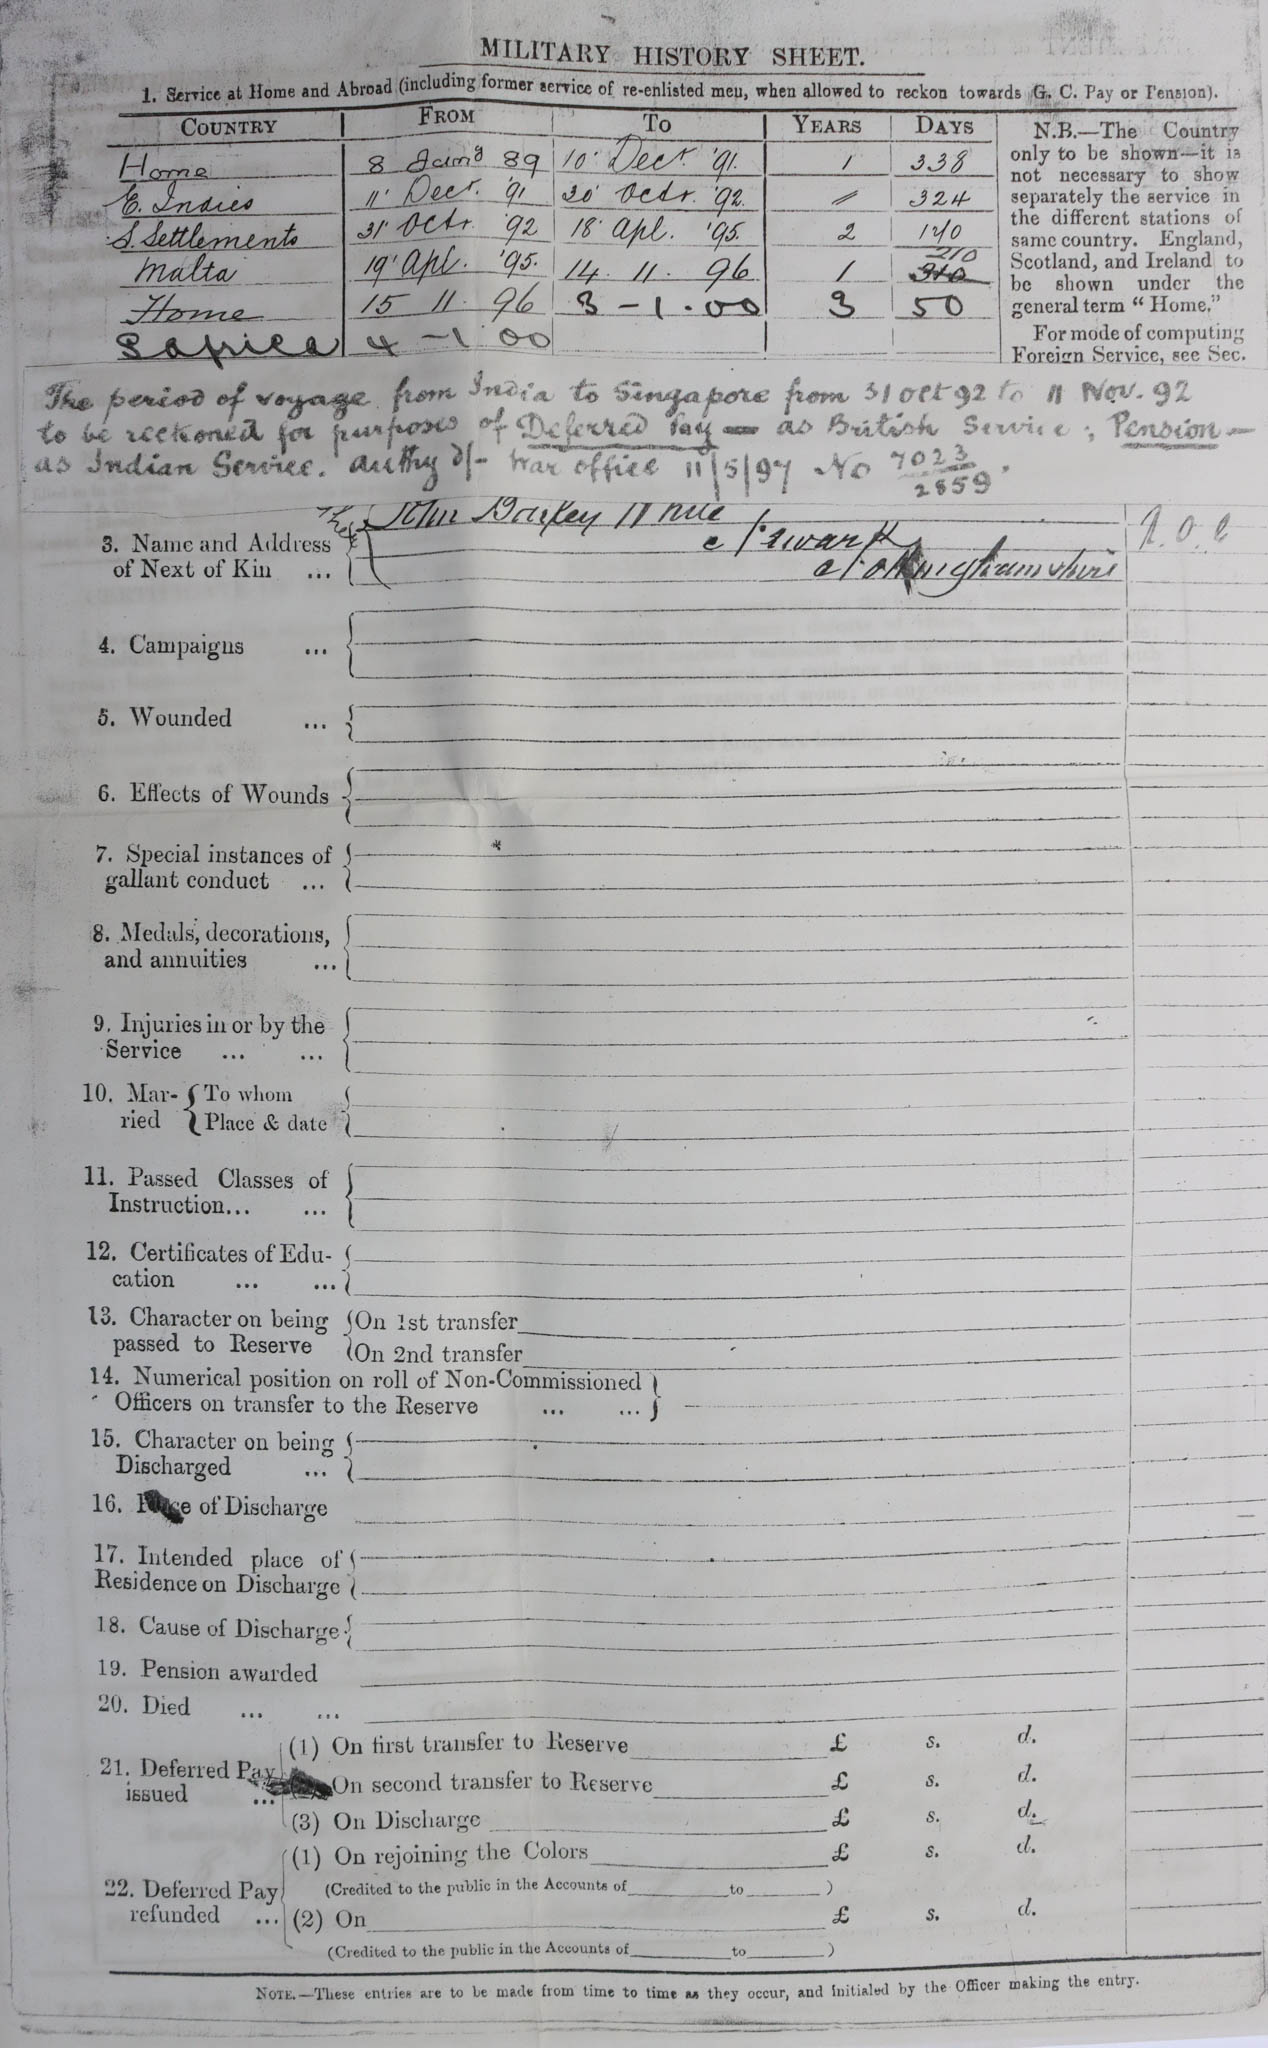 MILITARY HISTORY SHEET.
1. Service at Home and Abroad (including former service of re-enlisted men, when allowed to reckon towards G. C. Pay or Pension).
COUNTRY FROM TO YEARS DAYS
Home 8 89 10 Decr. '91. 1 338
E. Indies 11 Decr. '91 30 Octr. '92. " 324
S. Settlements 31 Octr. '92 18 Apl. '95. 2 170
Malta 19 Apl. '95. 14. 11. 96 1 310 210
Home 15 11. 96 3 - 1. 00 3 50
S Africa 4 - 1 00
N.B.—The Country
only to be shown—it is
not necessary to show
separately the service in
the different stations of
same country. England,
Scotland, and Ireland to
be shown under the
general term "Home."
For mode of computing
Foreign Service, see Sec.
The period of voyage from India to Singapore from 31 Oct 92 to 11 Nov. 92
to be reckoned for purposes of Deferred Pay — as British Service; Pension —
as Indian Service. Authy d/- War office 11/5/97 No 7023/2859.
3. Name and Address of Next of Kin ... John
Newark
Nottinghamshire
4. Campaigns ...
5. Wounded ...
6. Effects of Wounds
7. Special instances of
gallant conduct ...
8. Medals, decorations,
and annuities ...
9. Injuries in or by the
Service ... ...
10. Mar- To whom
ried Place & date
11. Passed Classes of
Instruction... ...
12. Certificates of Edu-
cation ... ...
13. Character on being On 1st transfer
passed to Reserve On 2nd transfer
14. Numerical position on roll of Non-Commissioned
Officers on transfer to the Reserve ... ...
15. Character on being
Discharged ...
16. Place of Discharge
17. Intended place of
Residence on Discharge
18. Cause of Discharge
19. Pension awarded
20. Died ... ...
21. Deferred Pay issued ... (1) On first transfer to Reserve £ s. d.
On second transfer to Reserve £ s. d.
(3) On Discharge £ s. d.
22. Deferred Pay refunded ... (1) On rejoining the Colors £ s. d.
(Credited to the public in the Accounts of to )
(2) On £ s. d.
(Credited to the public in the Accounts of to )
NOTE.—These entries are to be made from time to time as they occur, and initialed by the Officer making the entry.